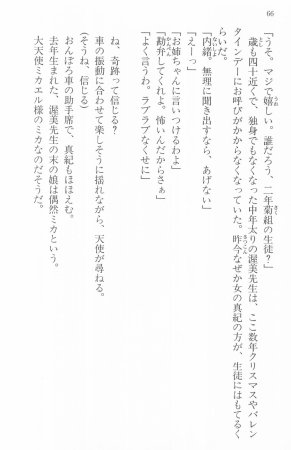 66
「うそ。マジで嬉しい。誰だろう、二年菊組の生徒?」
歳も四十近くで、独身でもなくなった中年太りの渥美先生は、ここ数年クリスマスやバレン
タインデーにお呼びがかからなくなっていた。昨今なぜか女の真紀の方が、生徒にはもてるく
らいだ。
「内緒。無理に聞き出すなら、あげない」
「えーっ」
「お姉ちゃんに言いつけるわよ」
「勘弁してくれよ。怖いんだからさぁ」
「よく言うわ。ラブラブなくせに」
ね、奇跡って信じる?
車の振動に合わせて楽しそうに揺れながら、天使が尋ねる。
(そうね、信じる)
おんぼろ車の助手席で、真紀もほほえむ。
去年生まれた、渥美先生の末の娘は偶然ミカという。
大天使ミカエル様のミカなのだそうだ。